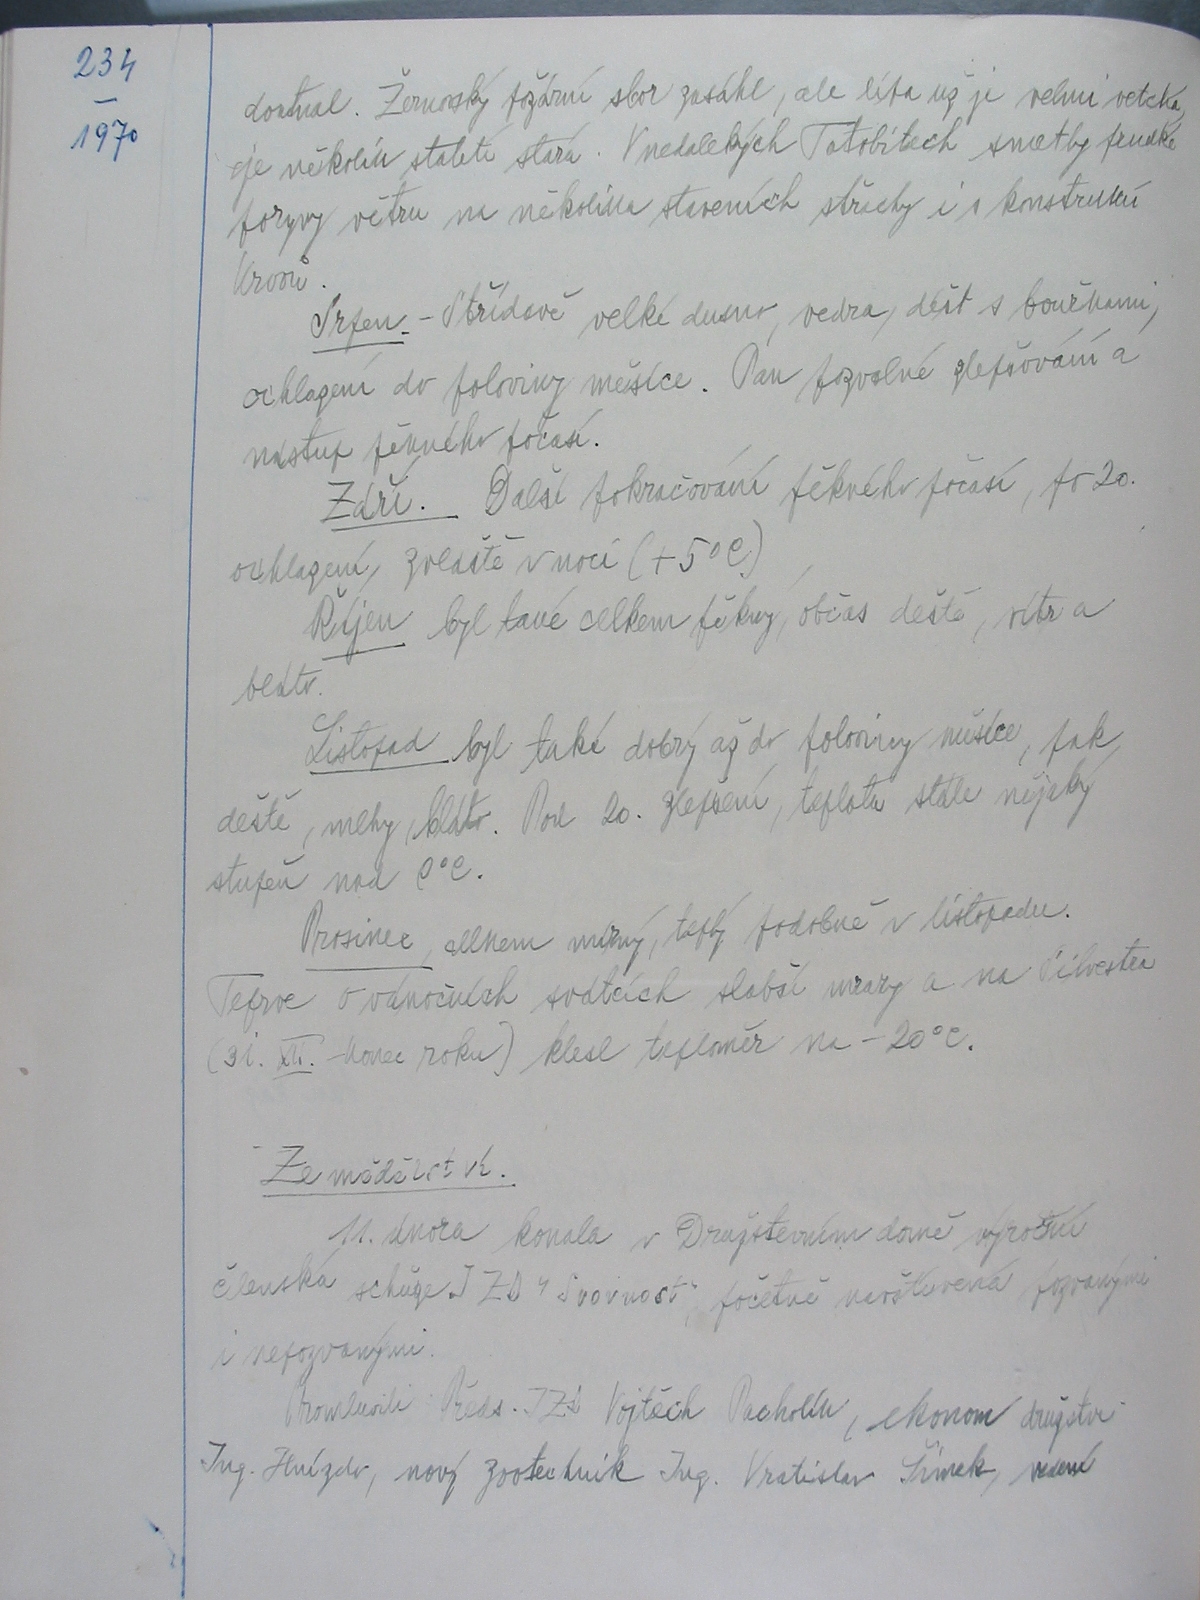 234
–
1970
doutnal. Žernovský požární sbor zasáhl, ale lípa už je velmi vetchá,
je několik staletí stará. V nedalekých Tatobitech smetly prudké
poryvy větru na několika staveních střechy i s konstrukcí
krovů.
Srpen. – Střídavě velké dusno, vedra, déšť s bouřkami,
ochlazení do poloviny měsíce. Pak pozvolné zlepšování a
nástup pěkného počasí.
Září. Další pokračování pěkného počasí, po 20.
ochlazení, zvláště v noci (+5°C)
Říjen byl také celkem pěkný, občas deště, vítr a
bláto.
Listopad byl také dobrý až do poloviny měsíce, pak
deště, mlhy, bláto. Po 20. zlepšení, teplota stále nějaký
stupeň nad 0°C.
Prosinec, celkem mírný, teplý podobně v listopadu.
Teprve o vánočních svátcích slabší mrazy a na Silvestra
(31. XII. – konec roku) klesl teploměr na – 20°C.
Zemědělství.
11. února konala v Družstevním domě výroční
členská schůze JZD "Svornost", početně navštívená pozvanými
i nepozvanými.
Promluvili Předs. JZD Vojtěch Pacholík, ekonom družstva
Ing. Hnízdo, nový zootechnik Ing. Vratislav Šimek, vedení